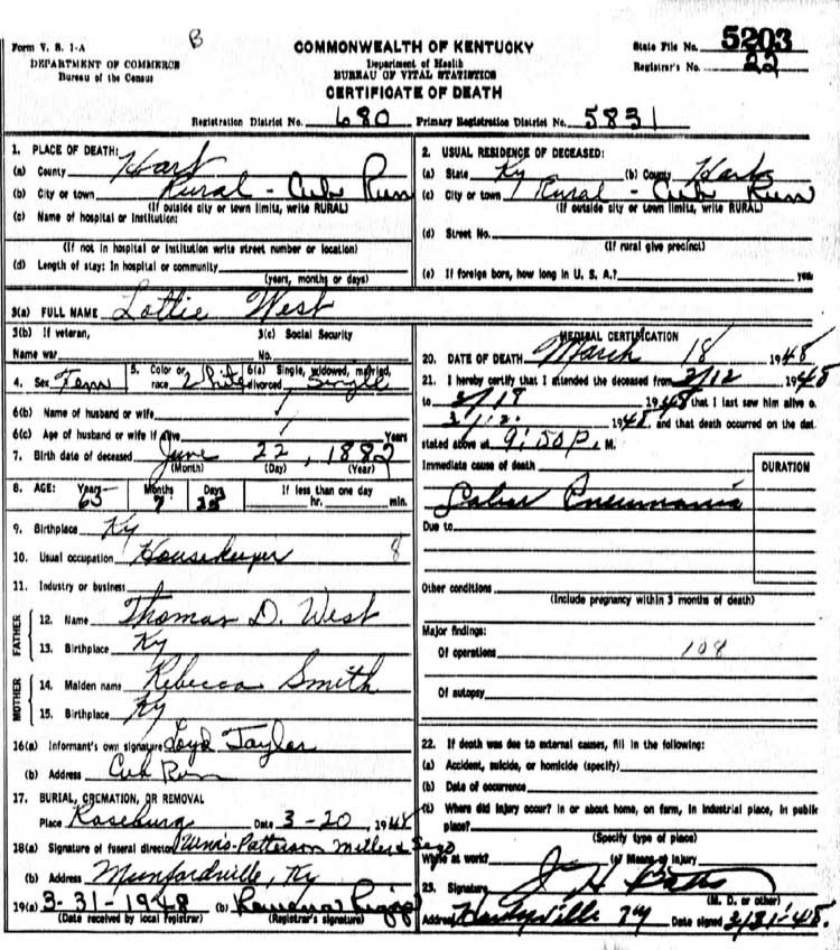 B
Form V. S. 1-A
DEPARTMENT OF COMMERCE
Bureau of the Census
COMMONWEALTH OF KENTUCKY
Department of Health
BUREAU OF VITAL STATISTICS
CERTIFICATE OF DEATH
State File No. 5203
Registrar's No. 22
Registration District No. 680 Primary Registration District No. 5831
1. PLACE OF DEATH:
(a) County Hart
(b) City or town Rural - Cub Run
(If outside city or town limits, write RURAL)
(c) Name of hospital or institution:
(If not in hospital or institution write street number or location)
(d) Length of stay: In hospital or community
(years, months or days)
2. USUAL RESIDENCE OF DECEASED:
(a) State Ky (b) County Hart
(c) City or town Rural - Cub Run
(If outside city or town limits, write RURAL)
(d) Street No.
(If rural give precinct)
(e) If foreign born, how long in U. S. A.? years
3(a) FULL NAME Lottie West
3(b) If veteran,
Name war
3(c) Social Security
No.
4. Sex Fem 5. Color or race White 6(a) Single, widowed, married, divorced Single
6(b) Name of husband or wife
6(c) Age of husband or wife if alive Years
7. Birth date of deceased June 22, 1882
(Month) (Day) (Year)
8. AGE: Years 63 Months 7 Days 25 If less than one day
hr. min.
9. Birthplace Ky
10. Usual occupation Housekeeper 8
11. Industry or business
FATHER
12. Name Thomas D. West
13. Birthplace Ky
MOTHER
14. Maiden name Rebecca Smith
15. Birthplace Ky
16(a) Informant's own signature Loyd Taylor
(b) Address Cub Run
17. BURIAL, CREMATION, OR REMOVAL
Place Roseburg Date 3-20, 1948
18(a) Signature of funeral director Patterson Miller & Sego
(b) Address Munfordville, Ky
19(a) 3-31-1948 (b)
(Date received by local registrar) (Registrar's signature)
MEDICAL CERTIFICATION
20. DATE OF DEATH March 18 1948
21. I hereby certify that I attended the deceased from 3/12 1948
to 3/18 1948 that I last saw him alive o
1948 and that death occurred on the dat
stated above at 9:50 P. M.
Immediate cause of death
DURATION
Lobar Pneumonia
Due to
Other conditions
(Include pregnancy within 3 months of death)
Major findings:
Of operations 108
Of autopsy
22. If death was due to external causes, fill in the following:
(a) Accident, suicide, or homicide (specify)
(b) Date of occurrence
(c) Where did injury occur? In or about home, on farm, in industrial place, in public
place?
(Specify type of place)
While at work? (e) Means of injury
23. Signature J H
(M. D. or other)
Address Hardyville Ky Date signed 3/31-48.